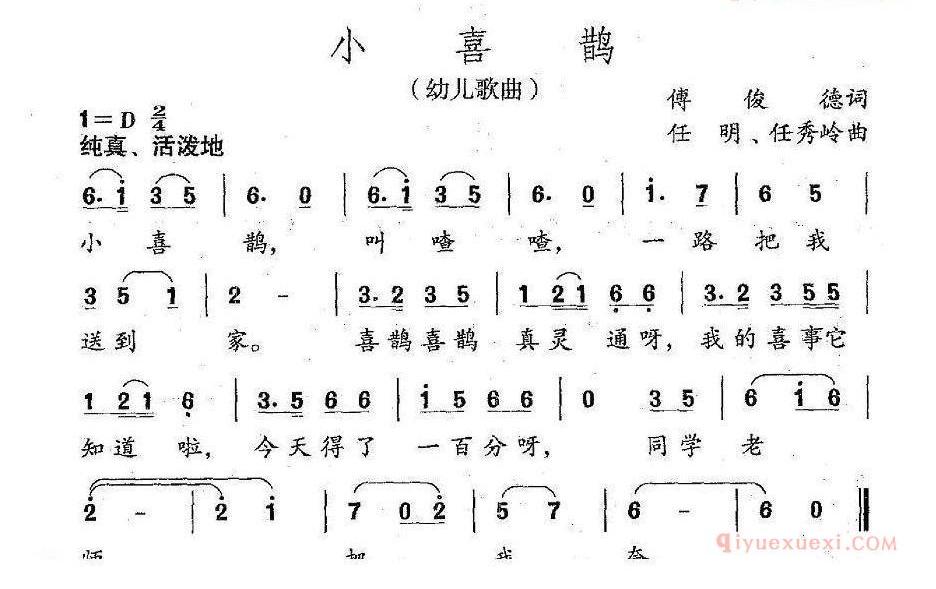 小喜鹊
（幼儿歌曲）
1=D 2/4
傅俊德词
纯真、活泼地
任明、任秀岭曲
6. i 3 5 | 6. 0 | 6. i 3 5 | 6. 0 | i. 7 | 6 5 |
小喜鹊，叫喳喳，一路把我
3 5 1 | 2 - | 3. 2 3 5 | 1 2 1 6 6 | 3. 2 3 5 5 |
送到家。喜鹊喜鹊真灵通呀，我的喜事它
1 2 1 6 | 3. 5 6 6 | i 5 6 6 | 0 3 5 | 6 i 6 |
知道啦，今天得了一百分呀，同学老
2 - | 2 i | 7 0 2 | 5 7 | 6 - | 6 0 ‖
qiyuexuexi.COM